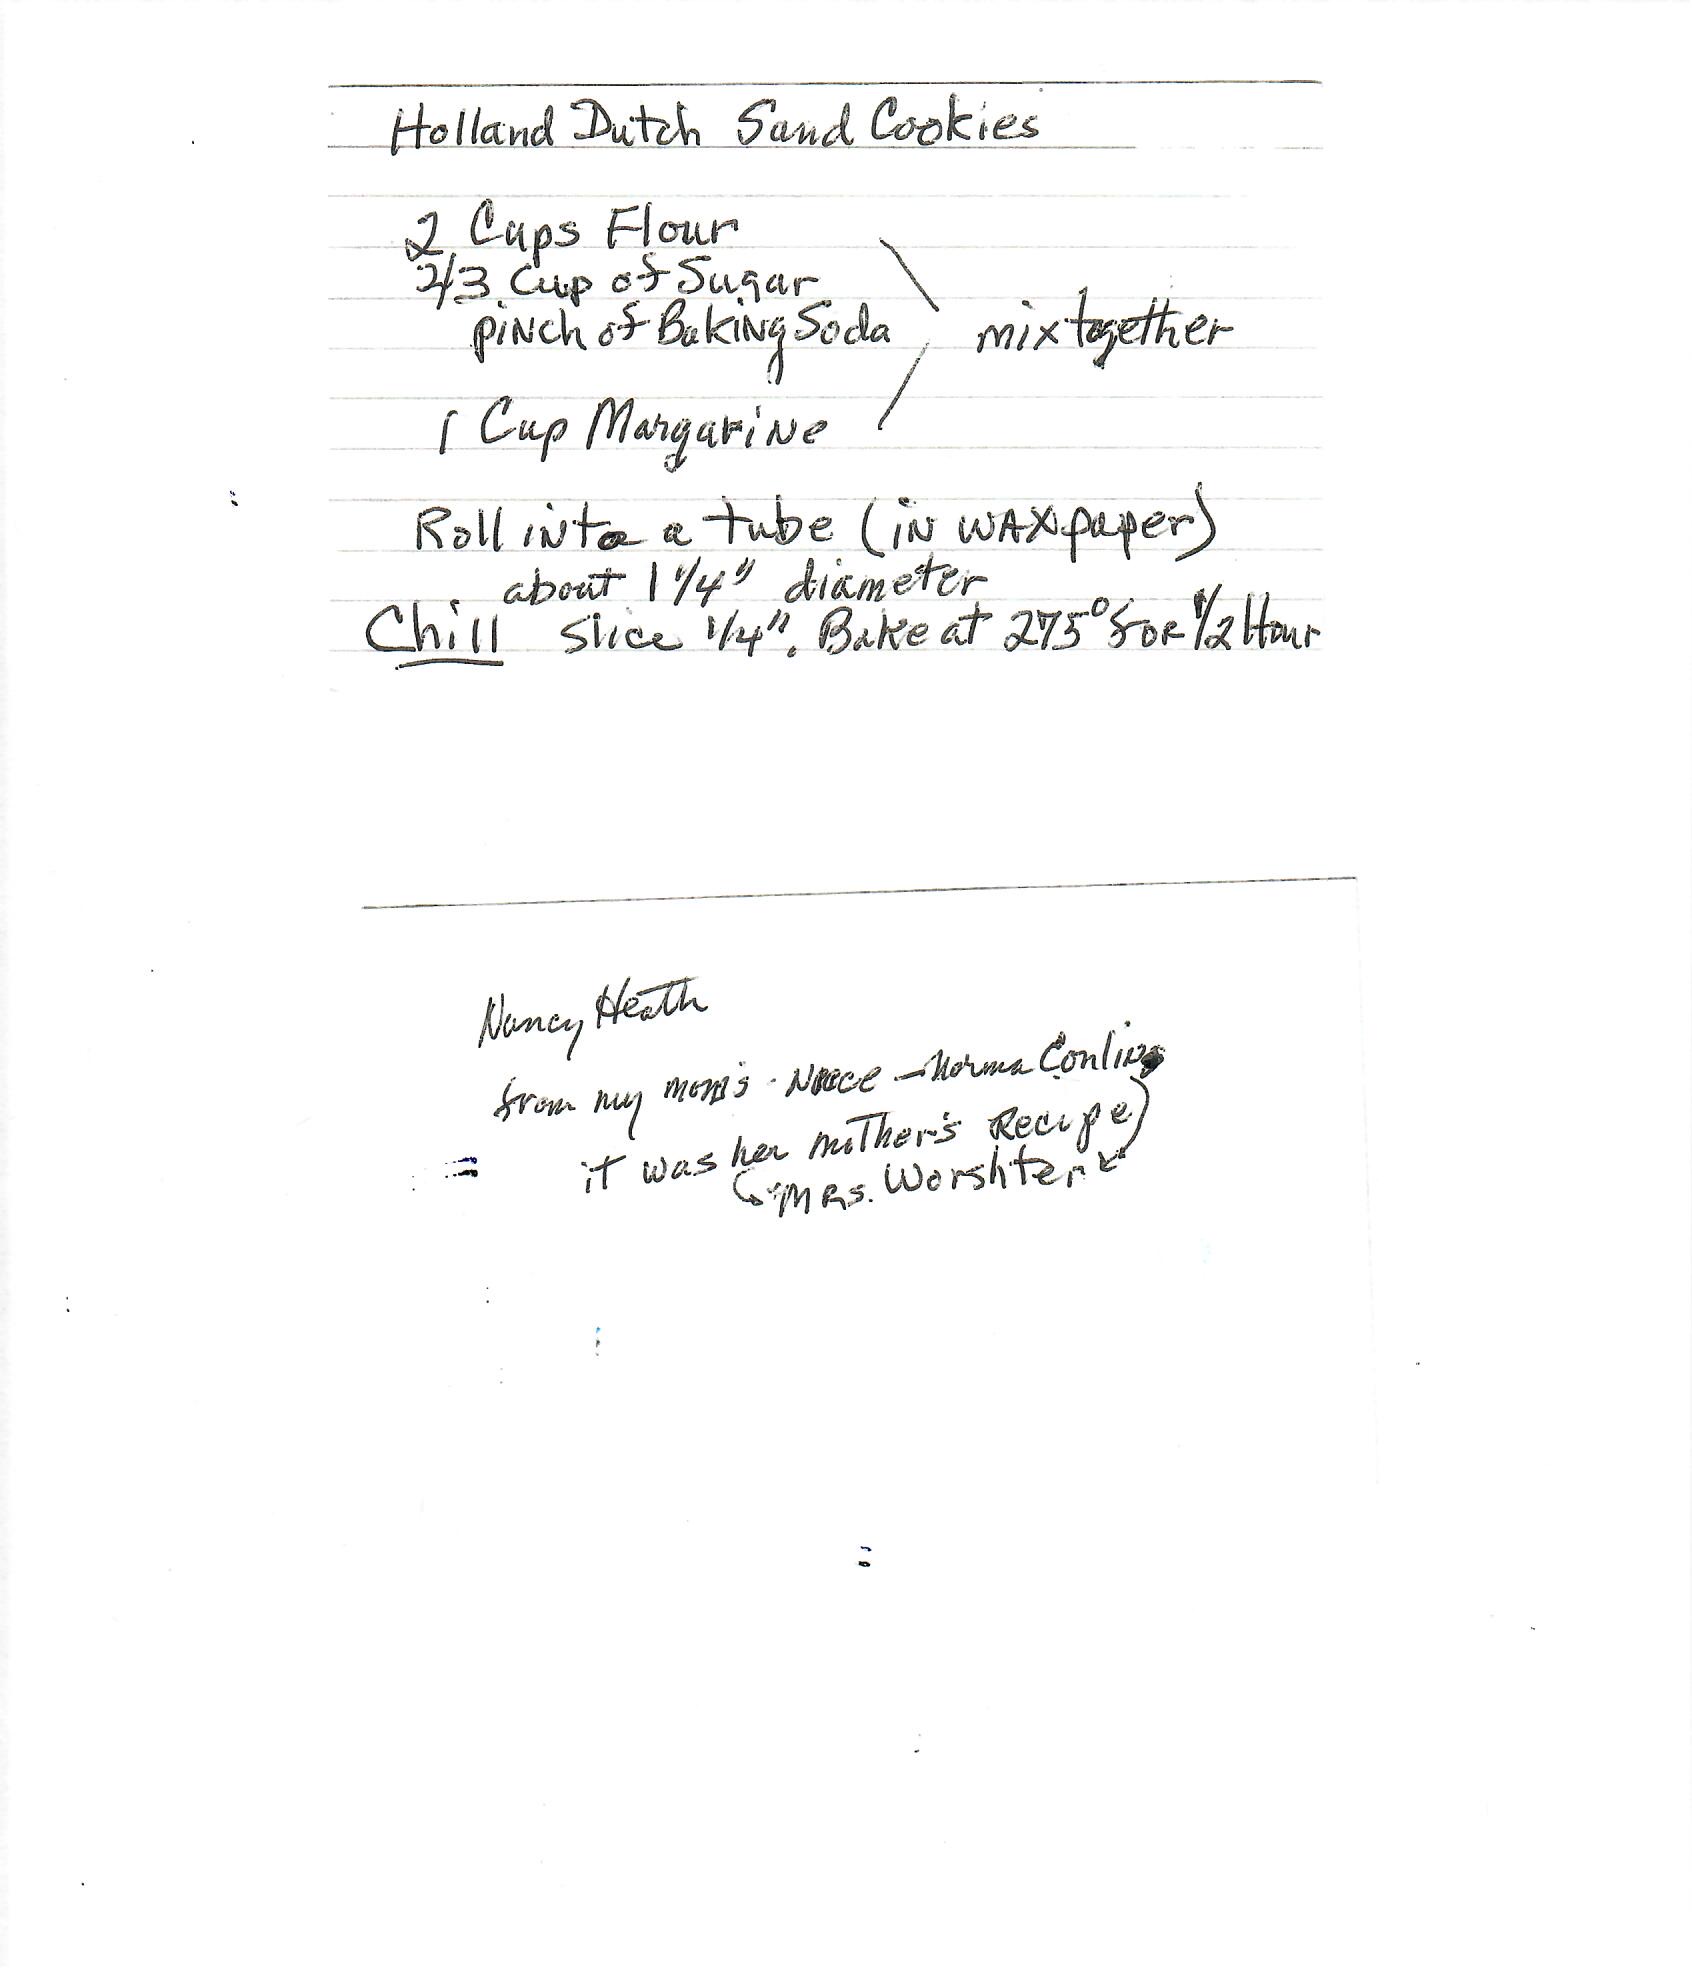 Holland Dutch Sand Cookies
2 Cups Flour
2/3 Cup of Sugar
pinch of Baking Soda
mix together
1 Cup Margarine
Roll into a tube (in waxpaper)
about 1 1/4" diameter
Chill slice 1/4". Bake at 275° for 1/2 Hour
Nancy Heath
from my mom's Niece - Norma Conling
it was her mother's Recipe
Mrs. Worshter